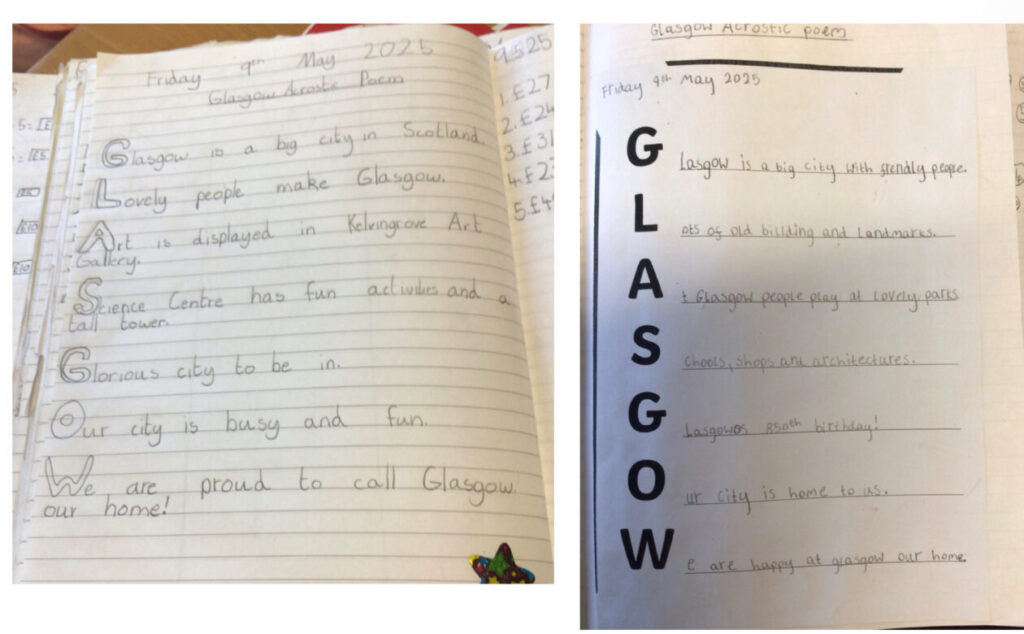 Friday 9th May 2025
Glasgow Acrostic Poem
Glasgow is a big city in Scotland.
Lovely people make Glasgow.
Art is displayed in Kelvingrove Art
Gallery.
Science Centre has fun activities and a
tall tower.
Glorious city to be in.
Our city is busy and fun.
We are proud to call Glasgow
our home!
5=
9.5.25
1. £27
2. £24
3. £31
4. £23
Glasgow Acrostic poem
Friday 9th May 2025
GLasgow is a big city with friendly people.
Lots of old billding and Landmarks.
At Glasgow people play at Lovely parks
Schools, shops and architectures.
GLasgowos 850th birthday!
Our city is home to us.
We are happy at glasgow our home.